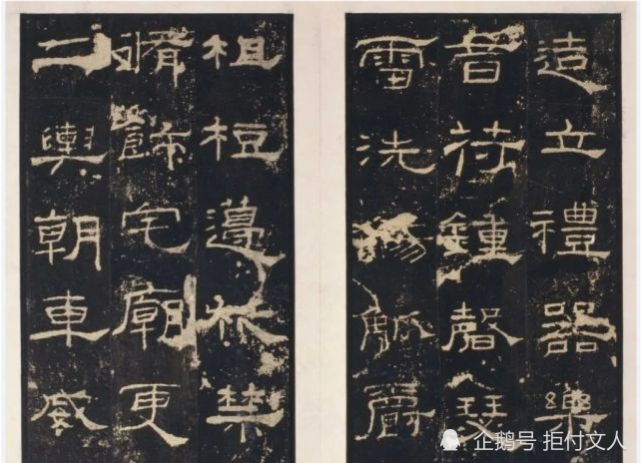 造立禮器樂
音苻鍾磬瑟
雷洗觴觚爵
柤梪籩柉禁
脩飾宅廟更
二輿朝車威
企鹅号 拒付文人